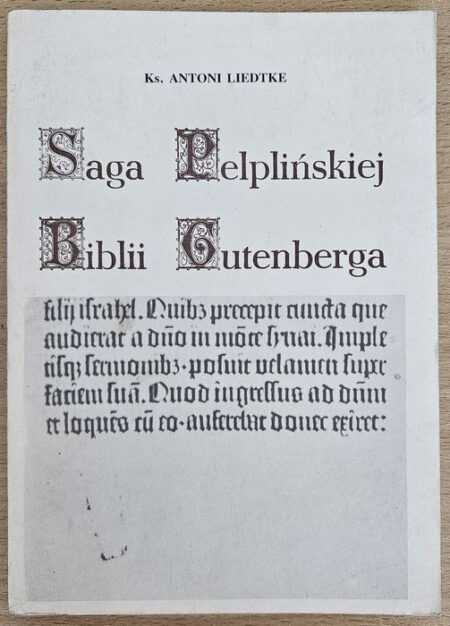 Ks. ANTONI LIEDTKE
Saga Pelplińskiej
Biblii Gutenberga
filij israhel. Quibz precepit cuncta que
audierat a dño in mõte synai. Imple
tisqz sermonibz· posuit velamen super
faciem suã. Quod ingressus ad dñm
et loquẽs cũ eo·auferebat donec exiret: